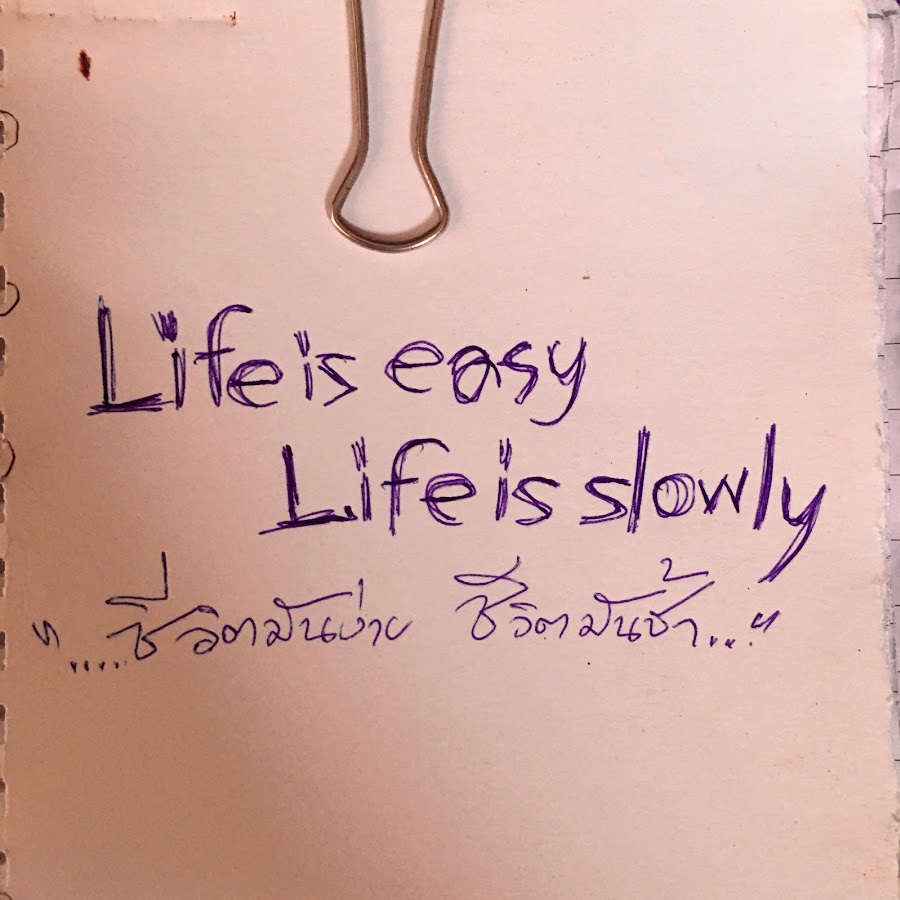 Life is easy
Life is slowly
"....ชีวิตมันง่าย ชีวิตมันช้า..."